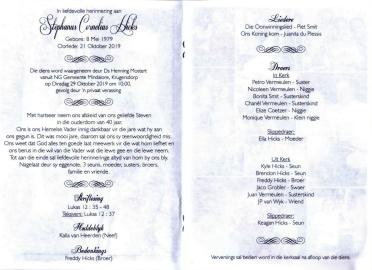 In liefdevolle herinnering aan
Stephanus Cornelius Hicks
Gebore: 8 Mei 1979
Oorlede: 21 Oktober 2019
Die diens word waargeneem deur Ds Henning Mostert
vanuit NG Gemeente Mindalore, Krugersdorp
op Dinsdag 29 Oktober 2019 om 10:00,
gevolg deur 'n privaat verassing
Met hartseer neem ons afskeid van ons geliefde Steven
in die ouderdom van 40 jaar.
Ons is ons Hemelse Vader innig dankbaar vir die jare wat hy aan
ons gegun is. Dit was mooi jare, daarom sal ons sy teenwoordigheid mis.
Ons weet dat God alles ten goede laat meewerk vir die wat hom liefhet en
ons berus in die wil van die Vader wat die lewe gee en die lewe neem.
Tot aan die einde sal liefdevolle herinneringe altyd van hom by ons bly.
Nagelaat deur sy eggenote, 3 seuns, moeder, susters, broers,
familie en vriende.
Skriflesing
Lukas 12 : 35 - 48
Teksvers: Lukas 12 : 37
Huldeblyk
Kalla van Heerden (Neef)
Bedankings
Freddy Hicks (Broer)
Liedere
Die Oorwinningslied - Piet Smit
Ons Koning kom - Juanita du Plessis
Draers
In Kerk
Petro Vermeulen - Suster
Nicoleen Vermeulen - Niggie
Bonita Smit - Susterskind
Chanél Vermeulen - Susterskind
Elize Coetzer - Niggie
Monique Vermeulen - Klein niggie
Slippedraer:
Ella Hicks - Moeder
Uit Kerk
Kyle Hicks - Seun
Brendon Hicks - Seun
Freddy Hicks - Broer
Jaco Grobler - Swaer
Juan Vermeulen - Susterskind
JP van Wyk - Vriend
Slippedraer:
Keagan Hicks - Seun
Verversings sal bedien word in die kerksaal na afloop van die diens.